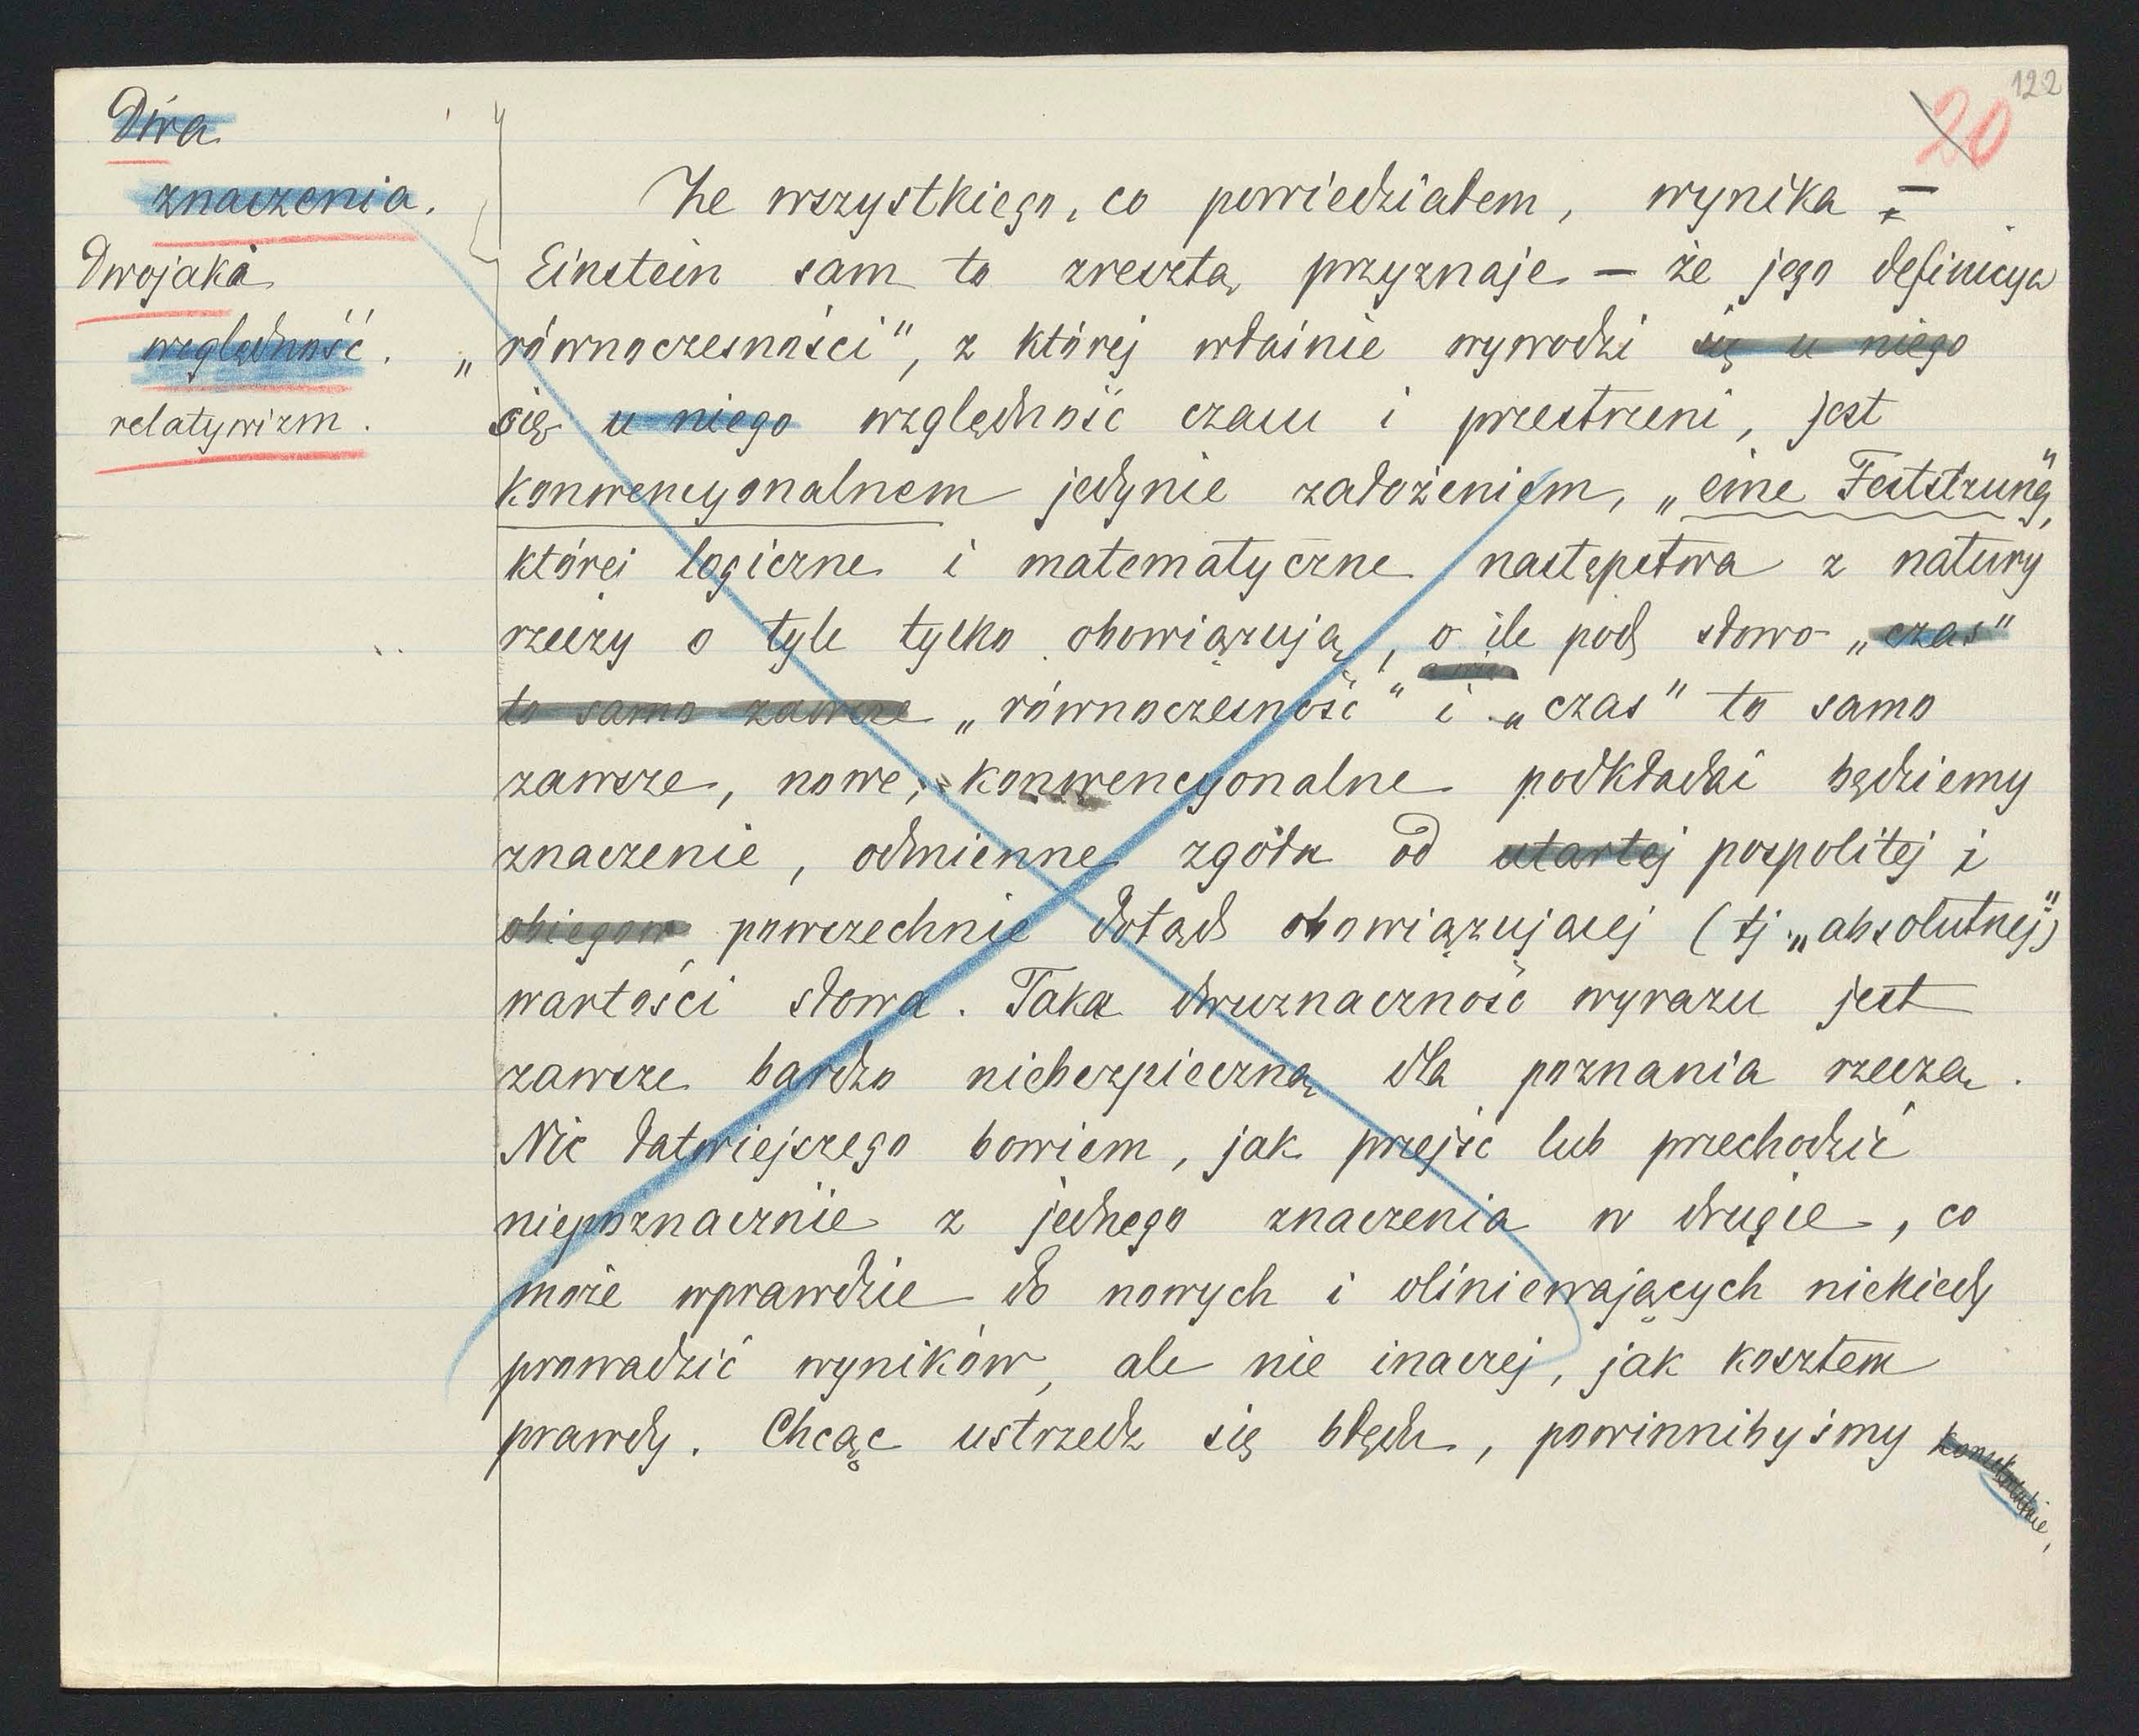 122
20
Dwa
znaczenia.
Dwojaka
względność.
relatywizm.
Ze wszystkiego, co powiedziałem, wynika –
Einstein sam to zresztą przyznaje – że jego definicya
„równoczesności", z której właśnie wywodzi się u niego
się u niego względność czasu i przestrzeni, jest
konwencyonalnem jedynie założeniem, „eine Feststzung",
której logiczne i matematyczne następstwa z natury
rzeczy o tyle tylko obowiązują, o ile pod słowo „czas"
to samo zawsze „równoczesność" i „czas" to samo
zawsze, nowe, konwencyonalne podkładać będziemy
znaczenie, odmienne zgoła od utartej pospolitej i
obiegow powszechnie dotąd obowiązującej (tj. „absolutnej")
wartości słowa. Taka dwuznaczność wyrazu jest
zawsze bardzo niebezpieczną dla poznania rzeczą.
Nic łatwiejszego bowiem, jak przejść lub przechodzić
niepoznacznie z jednego znaczenia w drugie, co
może wprawdzie do nowych i olśniewających niekiedy
prowadzić wyników, ale nie inaczej, jak kosztem
prawdy. Chcąc ustrzedz się błędu, powinnibyśmy